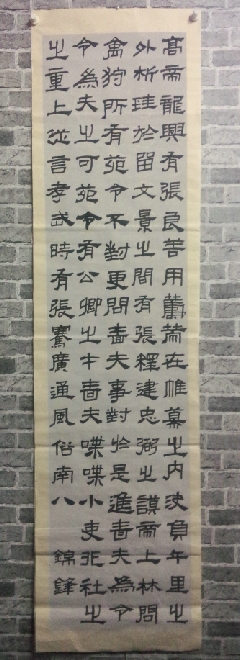 高帝龍興有張良善用籌策在帷幕之內決負千里之
外析珪於留文景之間有張釋建忠弼之謨帝上林問
禽狩所有苑令不對更問嗇夫事對於是進嗇夫為令
令為夫之可苑令有公卿之才嗇夫喋喋小吏非社之
之重上從言孝武時有張騫廣通風俗南八 錦鋒